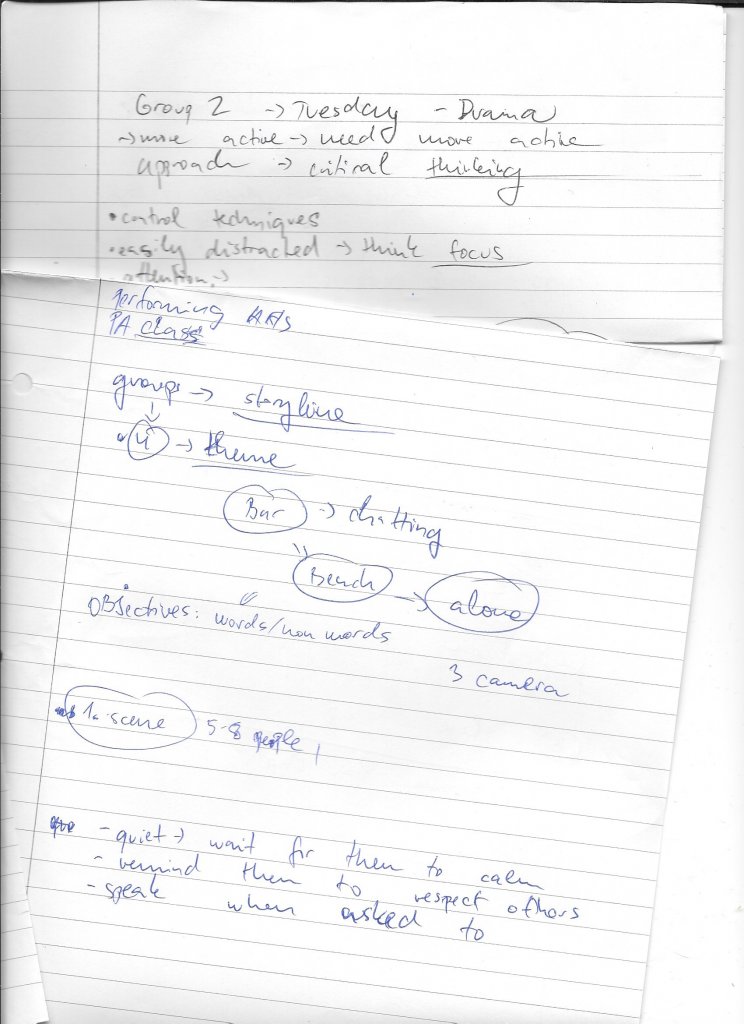 Group 2 → Tuesday - Drama
→ more active → need more active
approach → critical thinking
• control techniques
• easily distracted → think focus
attention →
Performing Arts
PA class
groups → storyline
• 4 → theme
Bar → chatting
Bench → alone
OBJectives: words/non words
3 camera
1. scene 5-8 people
- quiet → wait for them to calm
- remind them to respect others
- speak when asked to